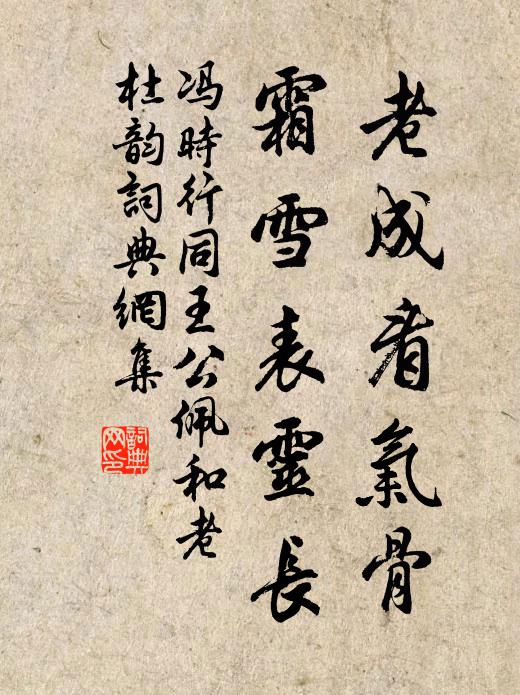 老成看氣骨
霜雪表靈長
馮時行同王公佩和老
杜韵詞典網集
詞典网印